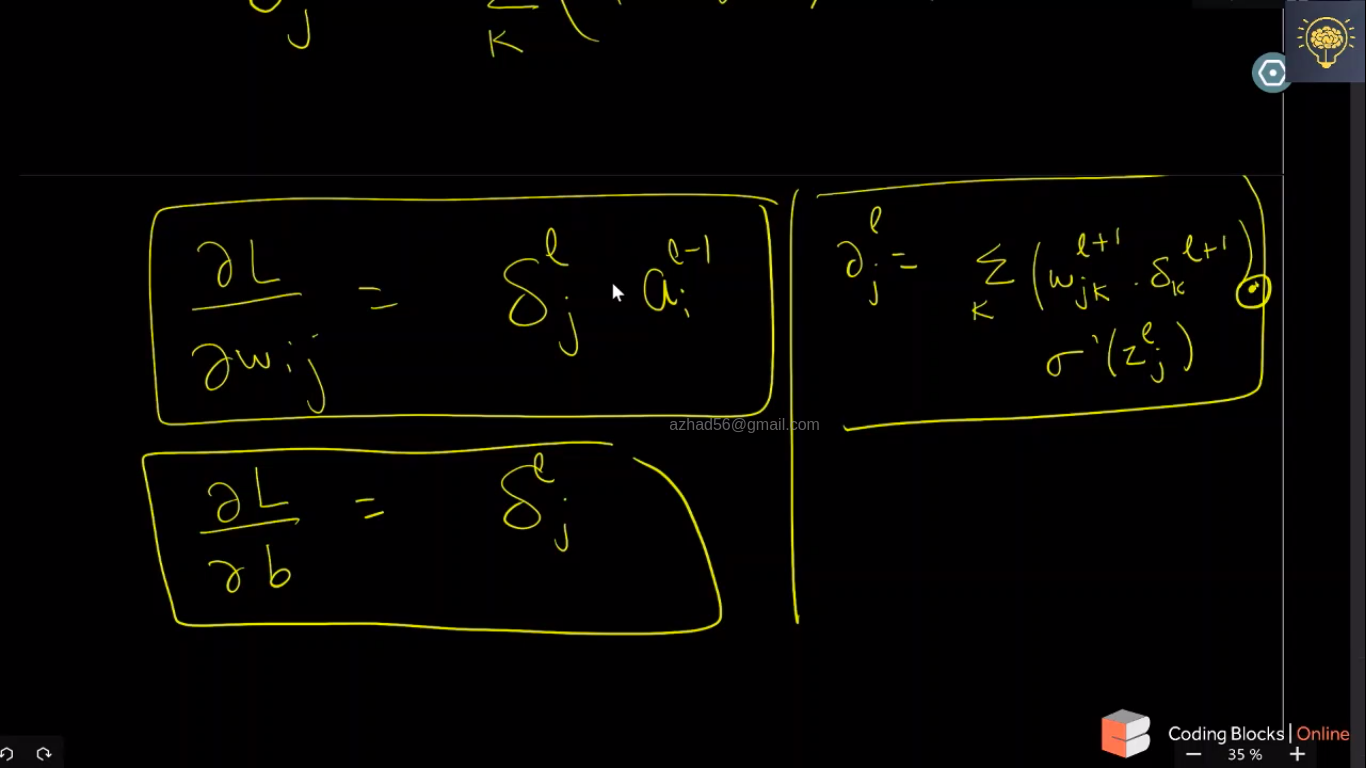 j K (
∂L/∂wij = δ^l_j · a^{l-1}_i
∂^l_j = Σ_K (w^{l+1}_{jK} · δ^{l+1}_K) ·
σ'(z^l_j)
azhad56@gmail.com
∂L/∂b = δ^l_j
Coding Blocks | Online
35 %